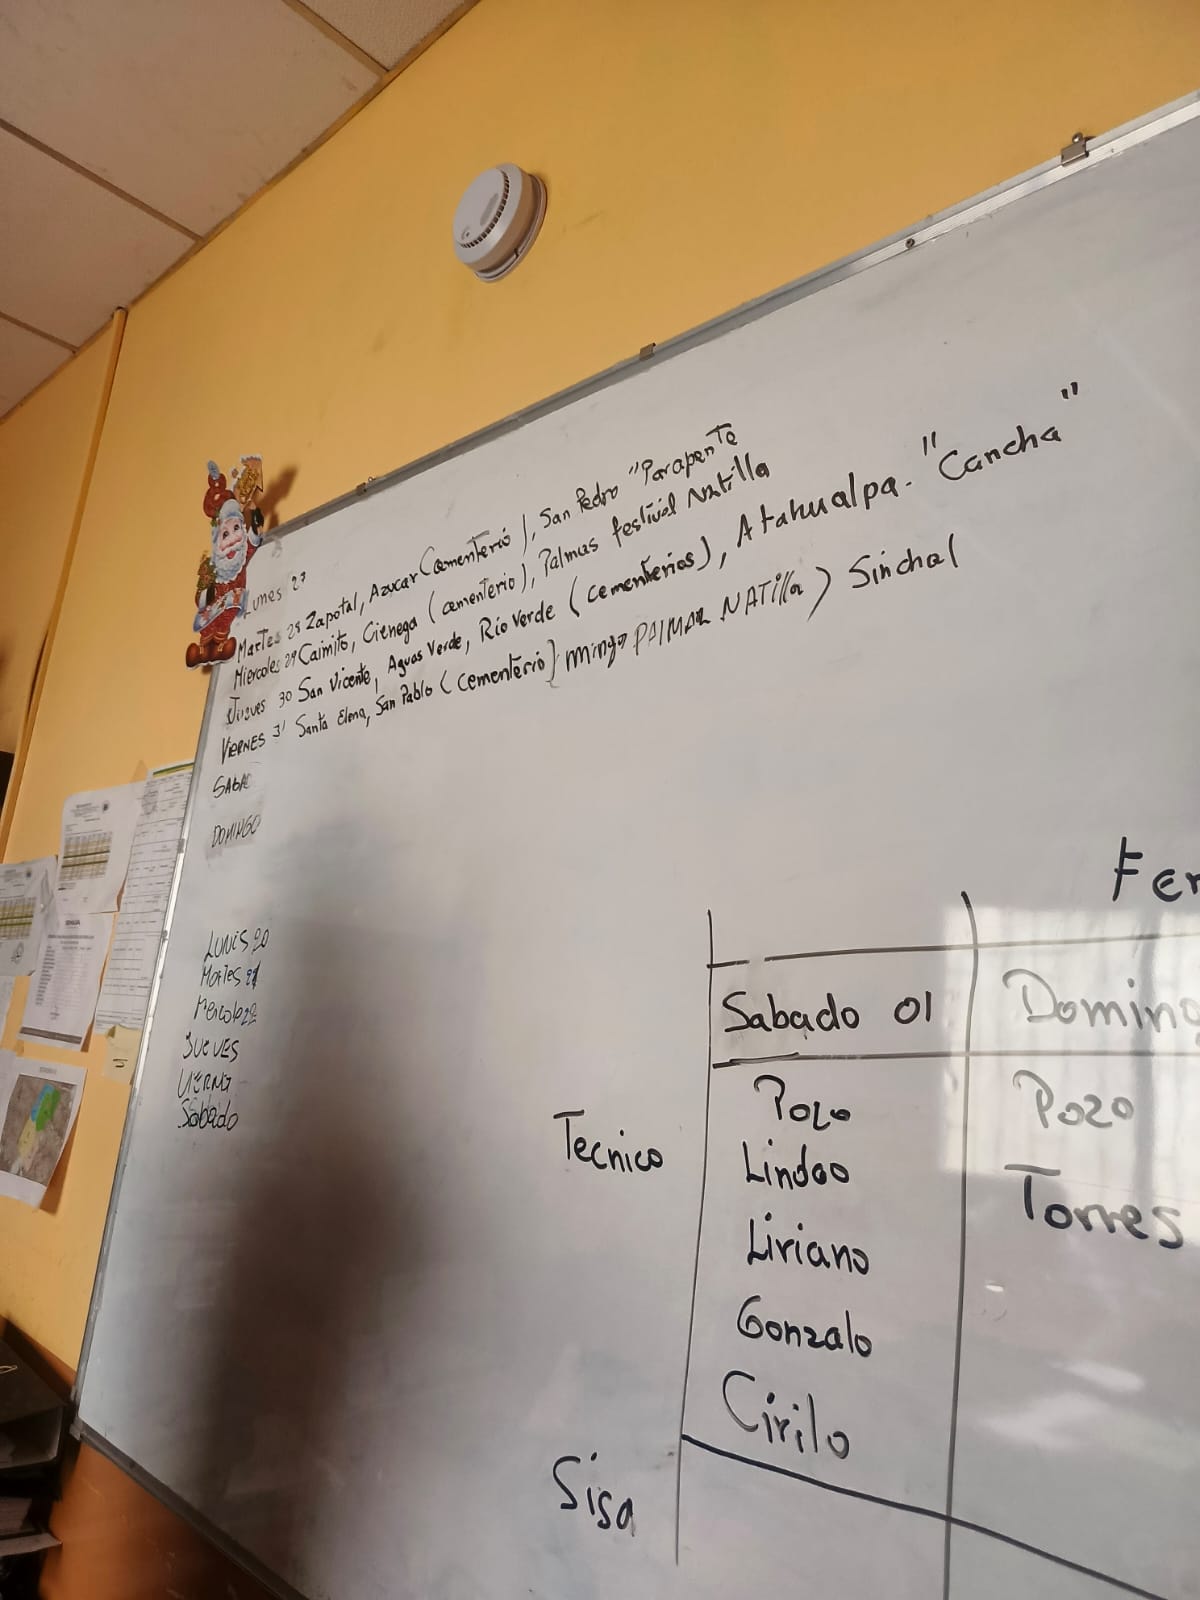 Lunes 27
Martes 28 Zapotal, Azucar (Cementerio), San Pedro "Parapente
Miercoles 29 Caimito, Cienega (cementerio), Palmas festival Natilla
Jueves 30 San Vicente, Aguas Verde, Rio Verde (cementerios), Atahualpa. "Cancha"
VIERNES 31 Santa Elena, San Pablo (cementerio) PALMAR NATilla) Sinchal
SABAD
DOMINGO
LUNES 20
Martes 21
Mercole 22
JUEVES
VIERNE
Sabado
Fer
Sabado 01 Doming
Tecnico
Pozo Pozo
Lindao Torres
Liriano
Gonzalo
Cirilo
Sisa